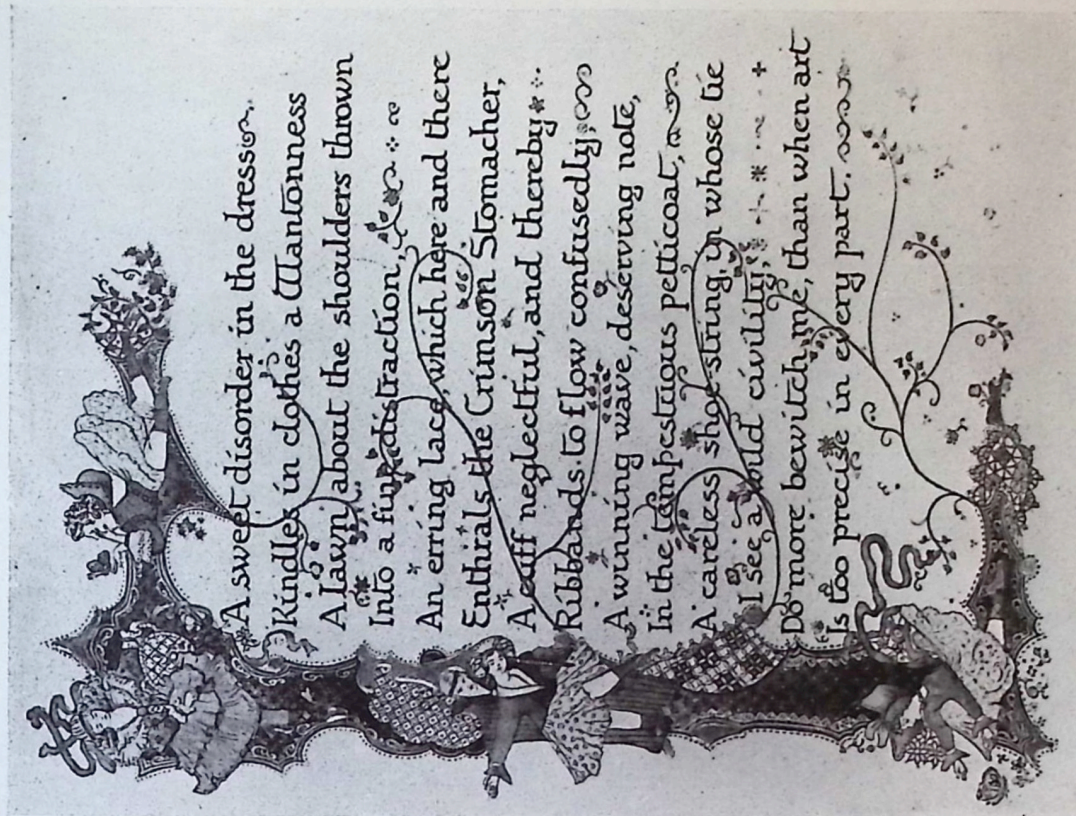 A sweet disorder in the dress
Kindles in clothes a Wantonness
A lawn about the shoulders thrown
Into a fine distraction,
An erring lace, which here and there
Enthrals the Crimson Stomacher,
A cuff neglectful, and thereby
Ribbands to flow confusedly;
A winning wave, deserving note,
In the tempestuous petticoat,
A careless shoe-string, in whose tie
I see a wild civility,
Do more bewitch me, than when art
Is too precise in every part.